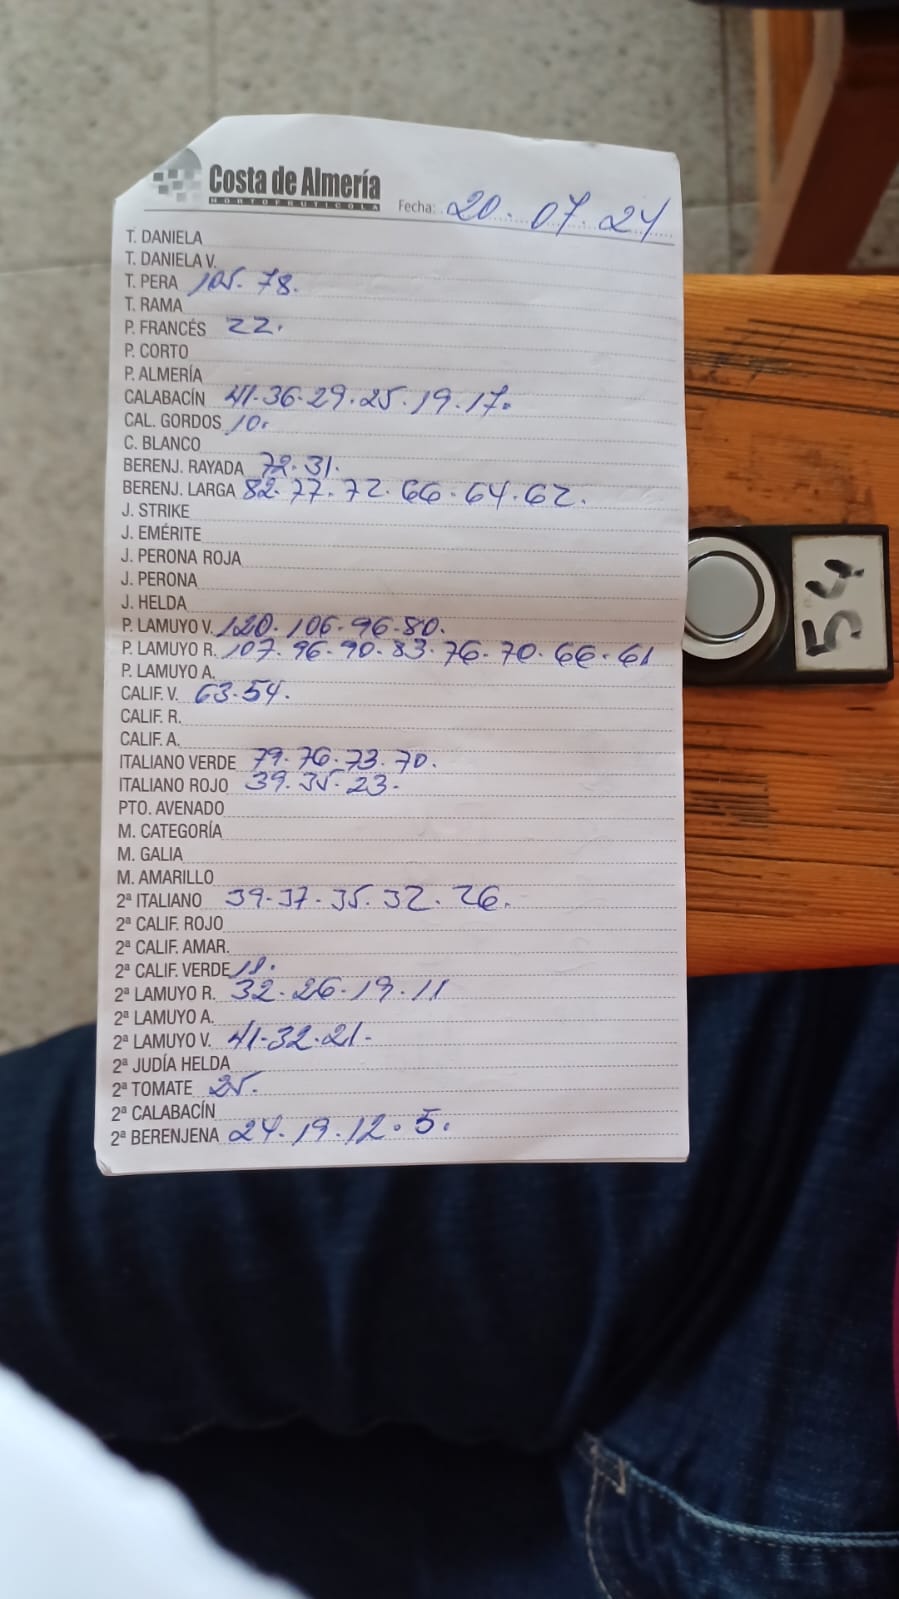 Costa de Almería
HORTOFRUTICOLA
Fecha: 20.07.24
T. DANIELA
T. DANIELA V.
T. PERA 105.78.
T. RAMA
P. FRANCÉS 22.
P. CORTO
P. ALMERÍA
CALABACÍN 41.36.29.25.19.17.
CAL. GORDOS 10.
C. BLANCO
BERENJ. RAYADA 72.31.
BERENJ. LARGA 82.77.72.66.64.62.
J. STRIKE
J. EMÉRITE
J. PERONA ROJA
J. PERONA
J. HELDA
P. LAMUYO V. 120.106.96.80.
P. LAMUYO R. 107.96.90.83.76.70.66.61
P. LAMUYO A.
CALIF. V. 63.54.
CALIF. R.
CALIF. A.
ITALIANO VERDE 79.76.73.70.
ITALIANO ROJO 39.35.23.
PTO. AVENADO
M. CATEGORÍA
M. GALIA
M. AMARILLO
2ª ITALIANO 39.37.35.32.26.
2ª CALIF. ROJO
2ª CALIF. AMAR.
2ª CALIF. VERDE
2ª LAMUYO R. 32.26.19.11
2ª LAMUYO A.
2ª LAMUYO V. 41.32.21.
2ª JUDÍA HELDA
2ª TOMATE 25.
2ª CALABACÍN
2ª BERENJENA 24.19.12.5.
54